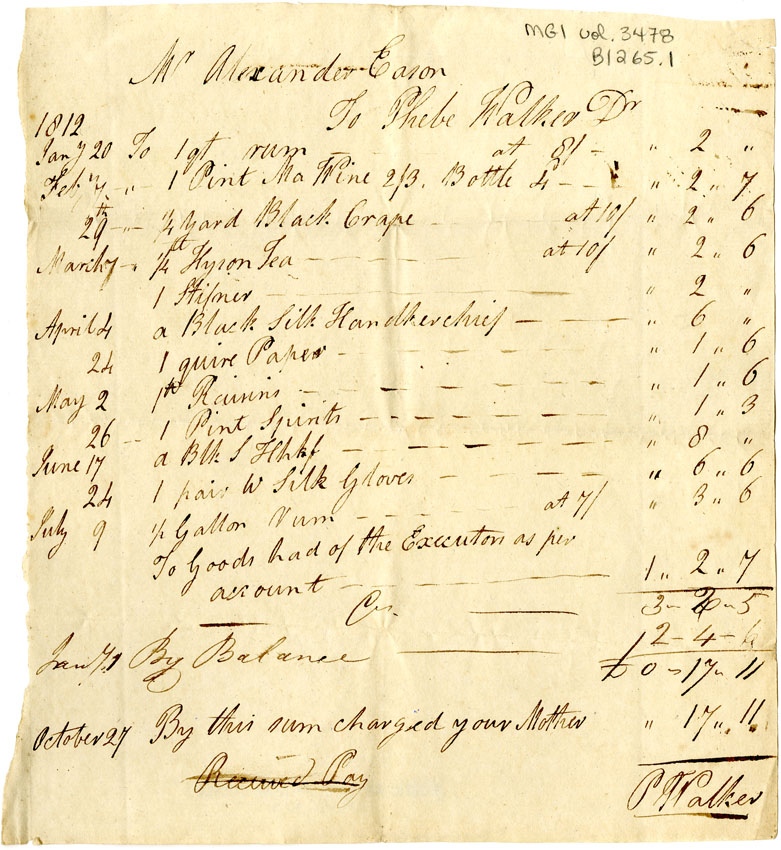 MG1 vol. 3478
B1265.1
Mr Alexander Eason
To Phebe Walker Dr
1812
Jany 20 To 1 qt rum - - at 8/ - " 2 "
Feby 7 - " - 1 Pint Ma Wine 2/3. Bottle 4 - - " 2 " 7
29th - " - 1/4 Yard Black Crape - at 10/ " 2 " 6
March 7 - " 1/4 th Hyson Tea - - at 10/ " 2 " 6
1 Stifner - - - " 2 "
April 4 a Black Silk Handkerchief - - - " 6 "
24 1 quire Paper - - - " 1 " 6
May 2 1 th Raisins - - - " 1 " 6
26 - 1 Pint Spirits - - - " 1 " 3
June 17 a Blk S Hhkf - - - " 8 "
24 1 pair W Silk Gloves - - - " 6 " 6
July 9 1/2 Gallon rum - - - at 7/ " 3 " 6
To Goods had of the Executors as per
account - - - 1 " 2 " 7
Cr. 3 - 2 - 5
Jany 1 By Balance 2 - 4 - 6
£ 0 - 17 - 11
October 27 By this sum charged your Mother " 17 " 11
Received Pay
P Walker